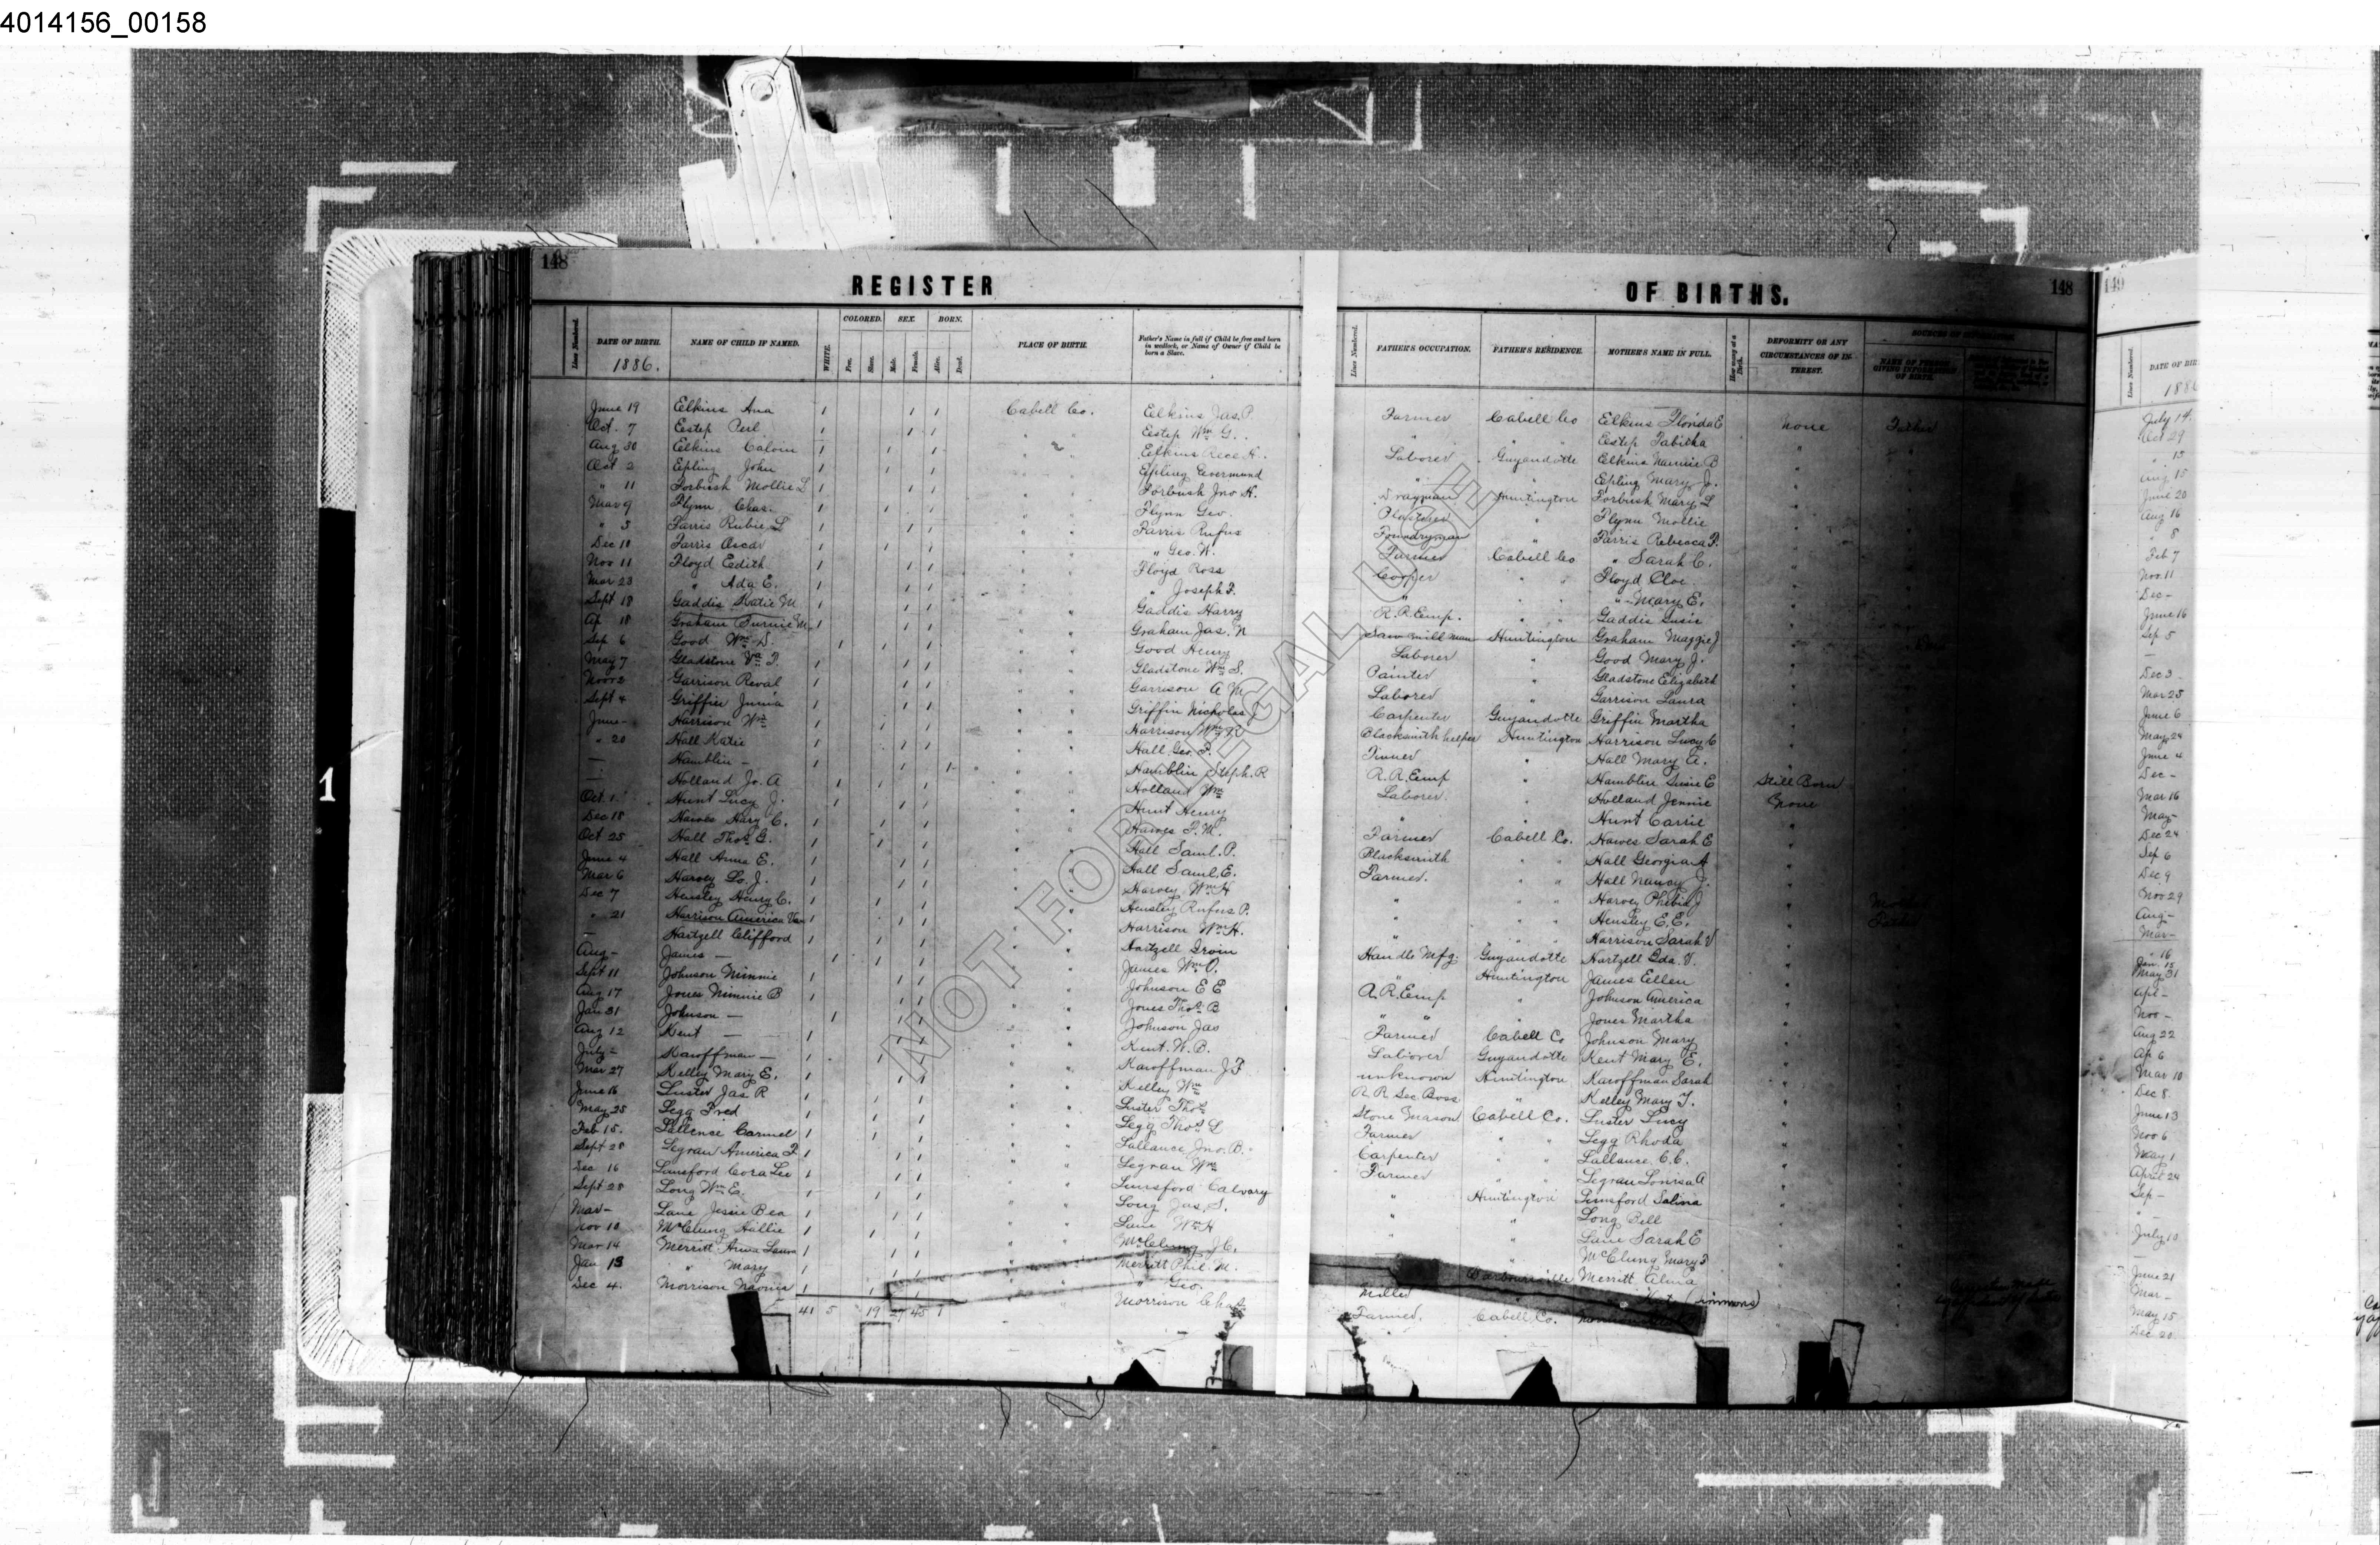 4014156_00158
148
REGISTER
OF BIRTHS.
148
149
Lines Numbered.
DATE OF BIRTH.
1886.
NAME OF CHILD IF NAMED.
WHITE.
COLORED.
Free.
Slave.
SEX.
Male.
Female.
BORN.
Alive.
Dead.
PLACE OF BIRTH.
Father's Name in full if Child be free and born in wedlock, or Name of Owner if Child be born a Slave.
Lines Numbered.
FATHER'S OCCUPATION.
FATHER'S RESIDENCE.
MOTHER'S NAME IN FULL.
How many at a Birth.
DEFORMITY OR ANY CIRCUMSTANCES OF INTEREST.
NAME OF PERSON GIVING INFORMATION OF BIRTH.
June 19 Elkins Ana Cabell Co. Elkins Jas. P. Farmer Cabell Co Elkins Florida E None Father
Oct. 7 Estep Perl Estep Wm G. " Estep Tabitha
Aug 30 Elkins Calvin Elkins Rece H. Laborer Guyandotte Elkins Nannie B
Oct 2 Epling John Epling Evermund " Epling Mary J.
" 11 Forbush Mollie L Forbush Jno H. Drayman Huntington Forbush Mary L
Mar 9 Flynn Chas. Flynn Geo. Flynn Mollie
" 3 Farris Rubie L Farris Rufus Foundryman Farris Rebecca F.
Dec 10 Farris Oscar " Geo. W. Farmer Cabell Co " Sarah C.
Nov 11 Floyd Edith Floyd Ross Cooper Floyd Cloe
Mar 23 " Ada E. " Joseph F. " " Mary E.
Sept 18 Gaddis Katie M Gaddis Harry R. R. Emp. Gaddis Susie
Ap 18 Graham Graham Jas. N Saw mill man Huntington Graham Maggie J
Sep 6 Good Wm S. Good Henry Laborer Good Mary J.
May 7 Gladstone Va F. Gladstone Wm S. Painter Gladstone Elizabeth
Nov 2 Garrison Reval Garrison A M Laborer Garrison Laura
Sept 4 Griffin Junia Griffin Nicholas J Carpenter Guyandotte Griffin Martha
June - Harrison Wm Harrison Wm Blacksmith helper Huntington Harrison Lucy C
" 20 Hall Katie Hall Geo. F. Tinner Hall Mary A.
— Hamblin - Hamblin Steph. R R. R. Emp Hamblin Susie E Still Born
— Holland Jo. A Holland Wm Laborer Holland Jennie None
Oct 1 Hunt Lucy J. Hunt Henry " Hunt Carrie
Dec 18 Hawes Hary C. Hawes F. M. Farmer Cabell Co. Hawes Sarah E
Oct 25 Hall Thos G. Hall Saml. P. Blacksmith Hall Georgia A
June 4 Hall Anna E. Hall Saml. E. Farmer. Hall Nancy J.
Mar 6 Harvey Lo. J. Harvey Wm H " Harvey Phebia J
Dec 7 Hensley Henry C. Hensley Rufus P. " Hensley E. E. Father
" 21 Harrison America Harrison Wm H. " Harrison Sarah V
— Hartzell Clifford Hartzell Irvin Handle Mfg. Guyandotte Hartzell Ida. V.
Aug - James — James Wm O. " Huntington James Ellen
Sept 11 Johnson Minnie Johnson E E R. R. Emp Johnson America
Aug 17 Jones Minnie B Jones Thos B " " Jones Martha
Jan 31 Johnson — Johnson Jas Farmer Cabell C Johnson Mary
Aug 12 Kent — Kent. W. B. Laborer Guyandotte Kent Mary E.
July - Karoffman — Karoffman J F unknown Huntington Karoffman Sarah
Mar 27 Kelley Mary E. Kelley Wm R R Sec Boss " Kelley Mary F.
June 16 Luster Jas R Luster Thos Stone Mason Cabell Co. Luster Lucy
May 25 Legg Fred Legg Thos L Farmer Legg Rhoda
Feb 15. Lallence Carmel Lallance Jno. B. Carpenter Lallance C. C.
Sept 28 Legran America F Legran Wm Farmer Legran Lonisa A
Dec 16 Lunsford Cora Lee Lunsford Calvary " Huntington Lunsford Salina
Sept 28 Long Wm E. Long Jas. S. " Long Bell
Mar - Lane Jessie Bea Lane Wm H " Lane Sarah E
Nov 10 McClung Hallie McClung J. C. McClung Mary F
Mar 14 Merritt Anna Laura Merritt Phil. M. Barboursville Merritt Alma
Jan 13 " Mary " Geo. Miller (Simmons)
Dec 4. Morrison Naomi Morrison Chas. Farmer. Cabell Co.
41 5 19 27 45 1
Lines Numbered.
DATE OF BIR
188
July 14.
Oct 29
" 13
Aug 15
June 20
Aug 16
" 8
Feb 7
Nov. 11
Dec -
June 16
Sep 5
—
Dec 3
Mar 25
June 6
May 24
June 4
Dec -
Mar 16
May -
Dec 24
Sep 6
Dec 9
Nov 29
Aug -
Mar -
" 16
May 31
Apl -
Nov -
Aug 22
Ap 6
Mar 10
Dec 8
June 13
Nov 6
May 1
April 24
Sep -
July 13
June 21
Mar -
May 15
Dec 20
1
NOT FOR LEGAL USE